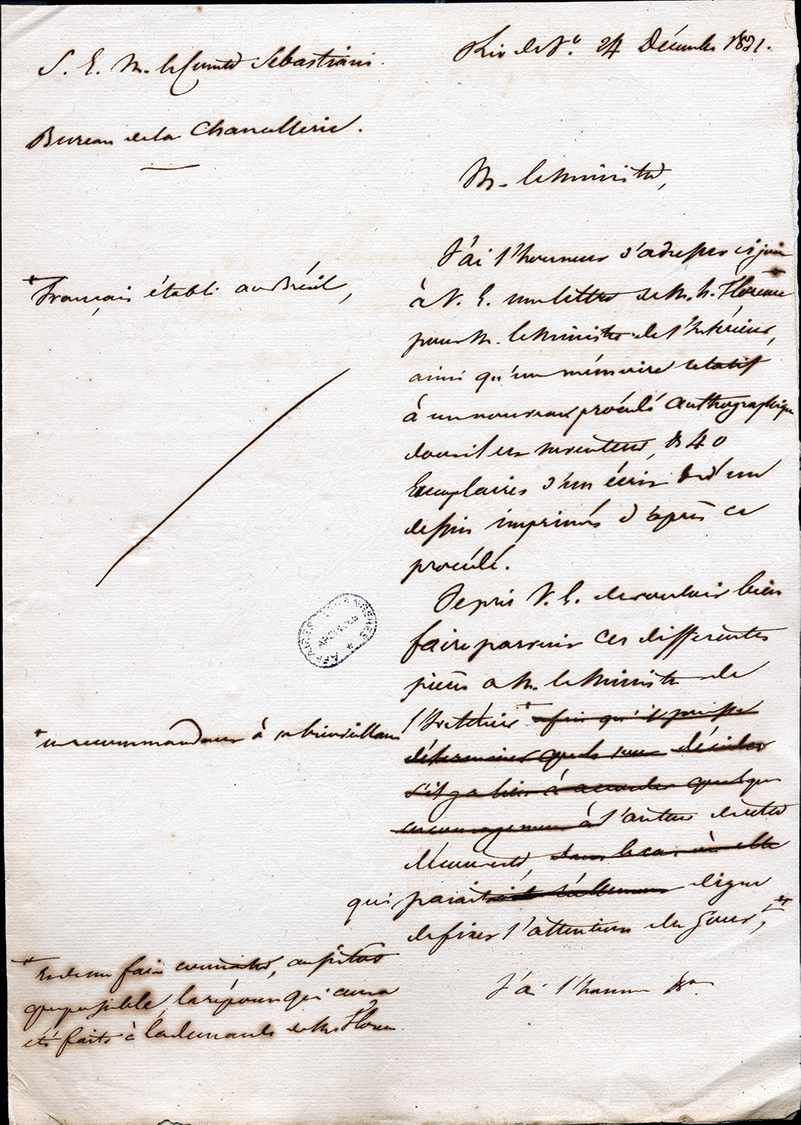 S. E. M. le Comte Sébastiani.
Rio de J.º 24 Décembre 1831.
Bureau de la Chancellerie.
M. le Ministre,
J'ai l'honneur d'adresser ci-join
* Français établi au Brésil,
à V. E. une lettre de M. h. Florence *
pour M. le Ministre de l'Intérieur,
ainsi qu'un mémoire relatif
à un nouveau procédé authographique
dont il est inventeur, & 40
Exemplaires d'un écrit et d'un
dessin imprimés d'après ce
procédé.
Je prie V. E. de vouloir bien
AFFAIRES ETRANGERES
ARCHIVES
faire parvenir ces différentes
pièces a M. le Ministre de
l'Intérieur * afin qu'il puisse
* en recommandant à sa bienveillance
déterminer décider
s'il y a lieu à accorder quelque
encouragement à l'auteur de cette
découverte, dans le cas où elle
qui parait digne
de fixer l'attention du Gouv.t, *
* Et de me faire connaître, aussitôt
que possible, la réponse qui aura
été faite à la demande de M. Floren
J'ai l'honneur &a